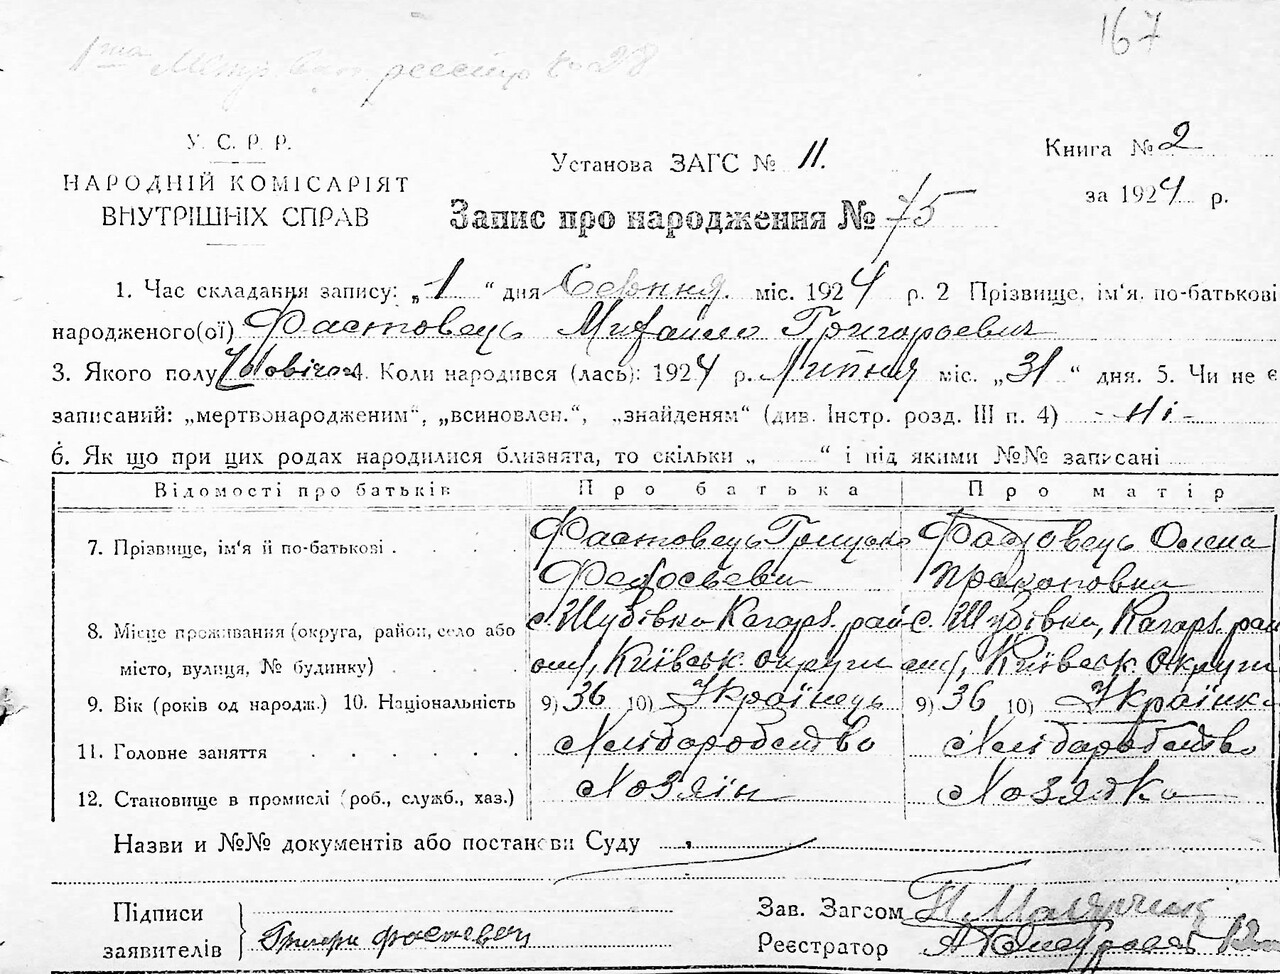 167
реєстр № 28
У. С. Р. Р.
НАРОДНІЙ КОМІСАРІЯТ
ВНУТРІШНІХ СПРАВ
Установа ЗАГС № 11.
Книга № 2
за 1924 р.
Запис про народження № 75
1. Час складання запису: „1“ дня Серпня міс. 1924 р. 2 Прізвище, ім'я, по-батькові
народженого(ої) Фастовець Михайло Григороевич
3. Якого полу Чоловічого 4. Коли народився (лась): 1924 р. Липня міс. „31“ дня. 5. Чи не є
записаний: „мертвонародженим“, „всиновлен.“, „знайденям“ (див. Інстр. розд. III п. 4) - Ні -
6. Як що при цих родах народилися близнята, то скільки „ “ і під якими №№ записані
Відомості про батьків Про батька Про матір
7. Прізвище, ім'я й по-батькові Фастовець Грицько Фастовець Олена
Федосьеви Прокоповна
8. Місце проживання (округа, район, село або с. Шубівка Кагарл. рай с. Шубівка, Кагарл. рай
місто, вулиця, № будинку) ону, Київськ. округи ону, Київськ. Округи
9. Вік (років од народж.) 10. Національність 9) 36 10) Українець 9) 36 10) Українка
11. Головне заняття Хліборобство Хліборобство
12. Становище в промислі (роб., служб., хаз.) Хозяїн Хозяйка
Назви и №№ документів або постанови Суду
Підписи
заявителів Григори Фастовец
Зав. Загсом
Реєстратор